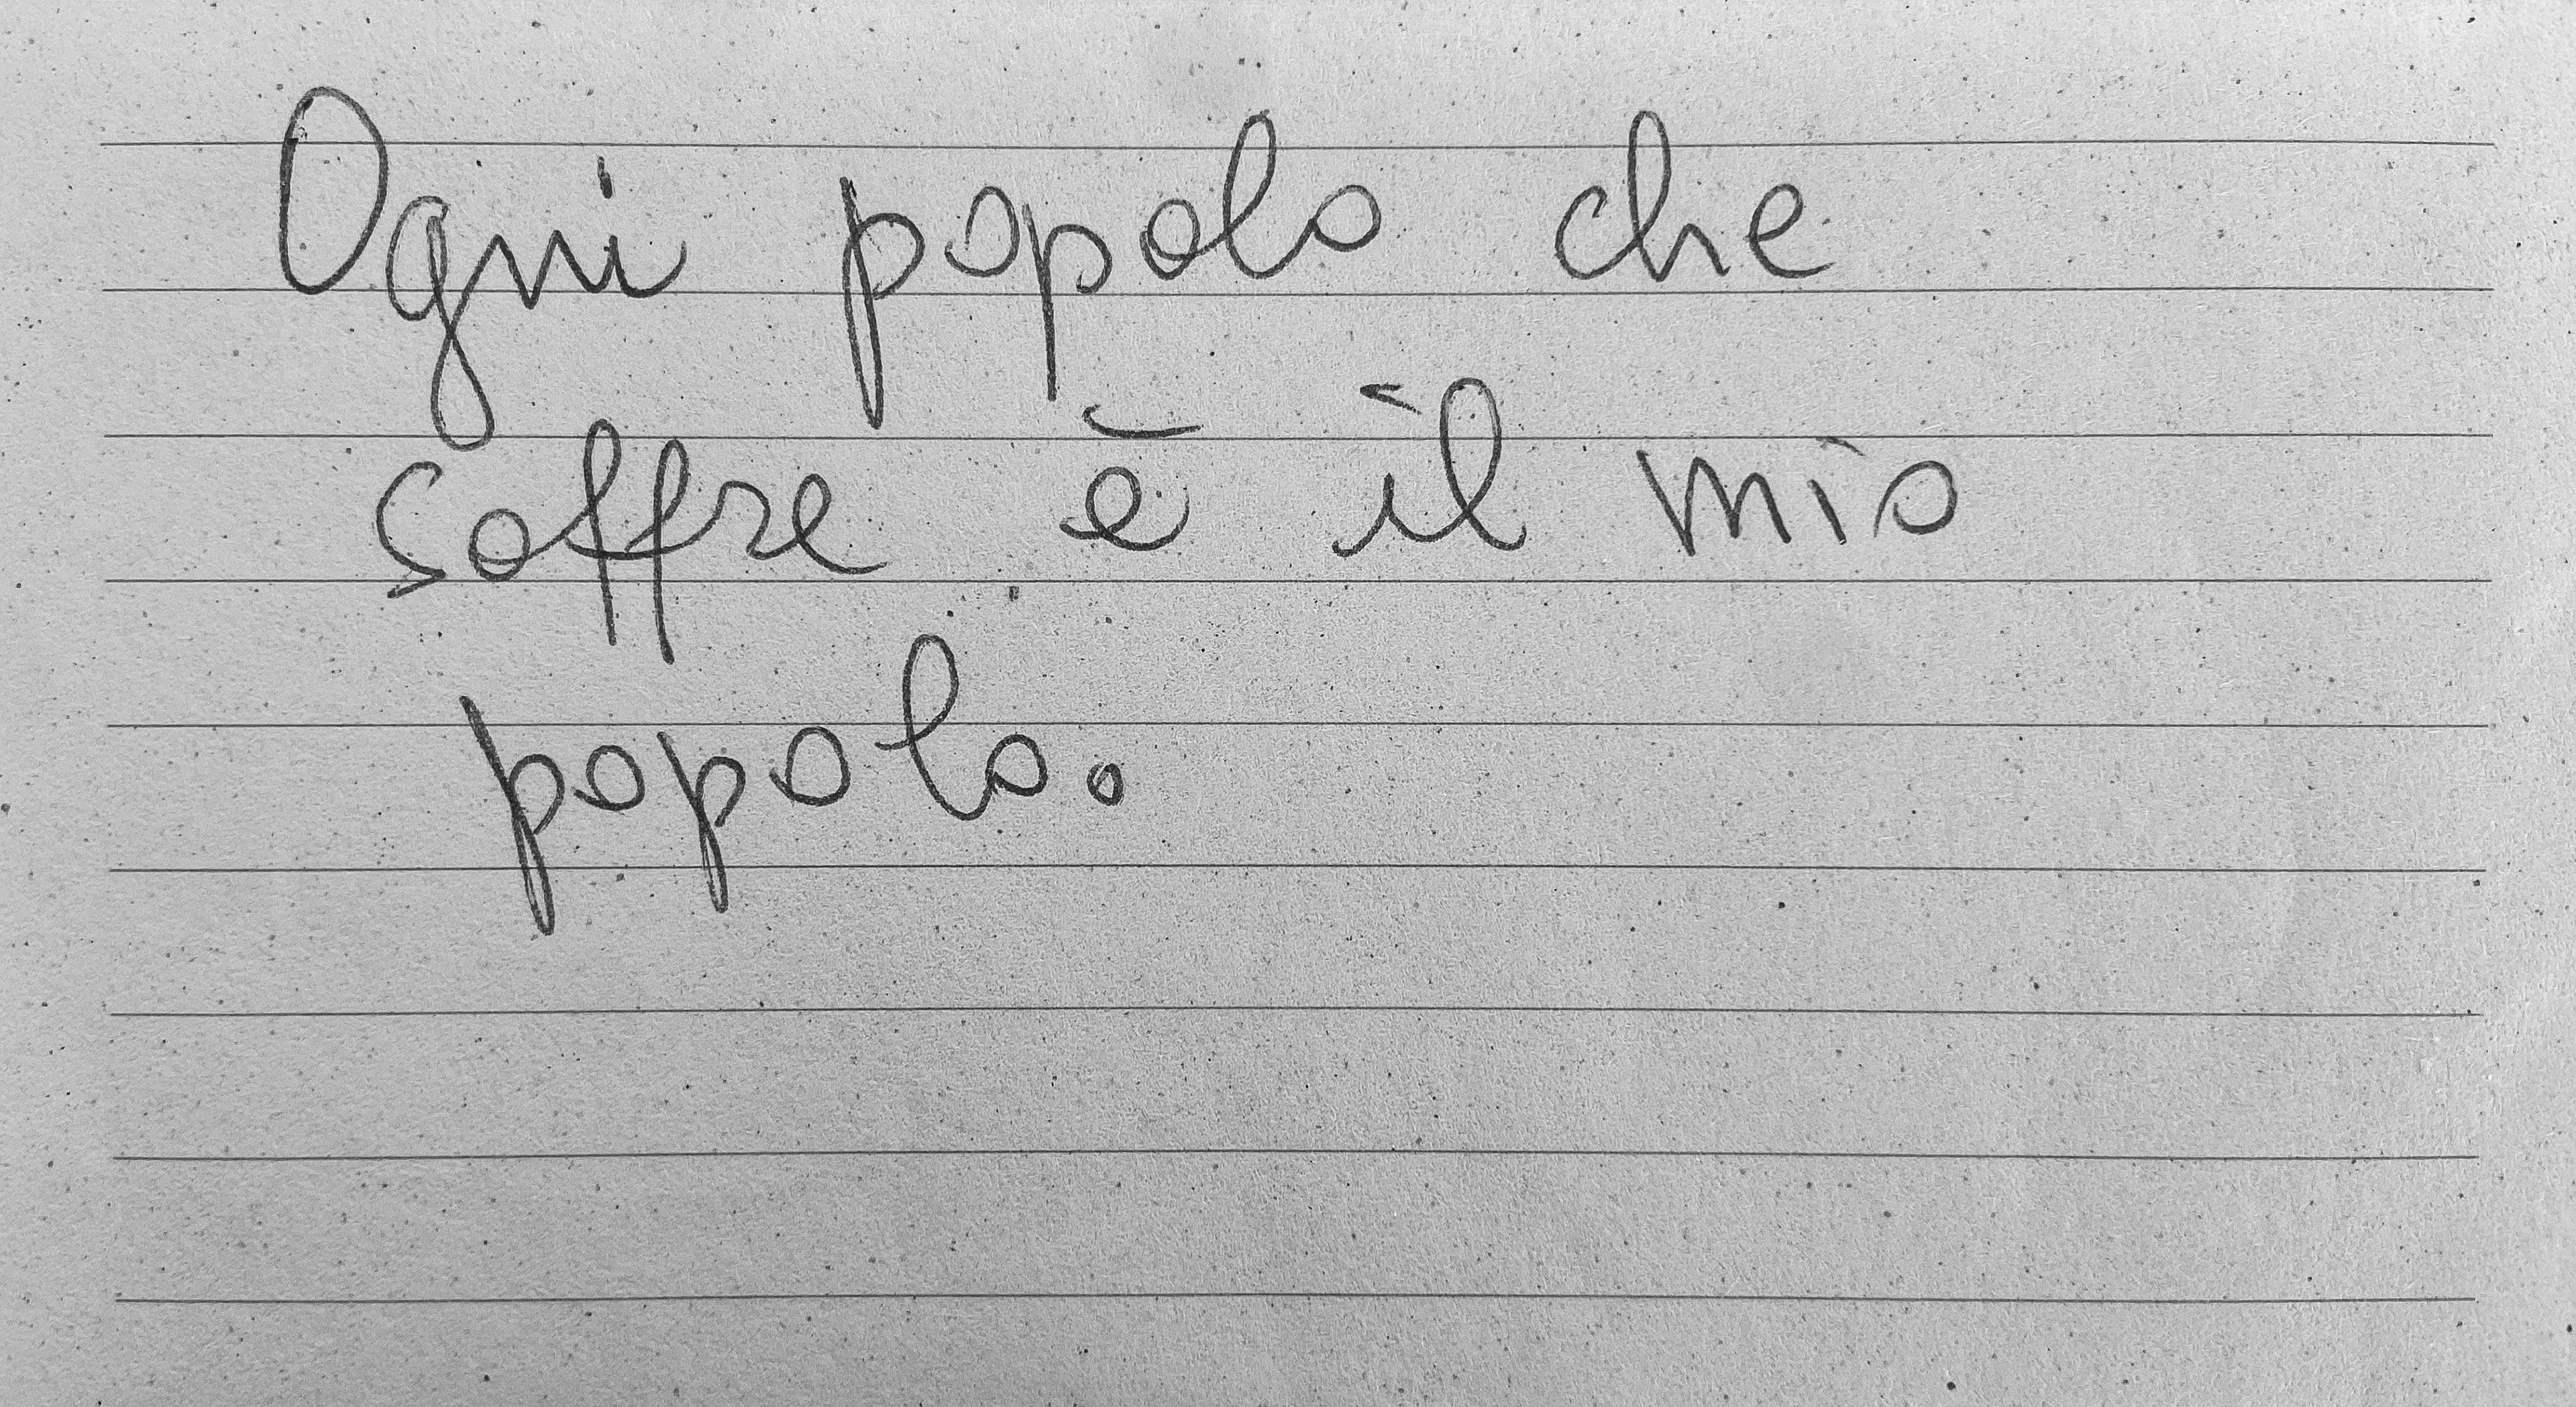 Ogni popolo che
soffre è il mio
popolo.